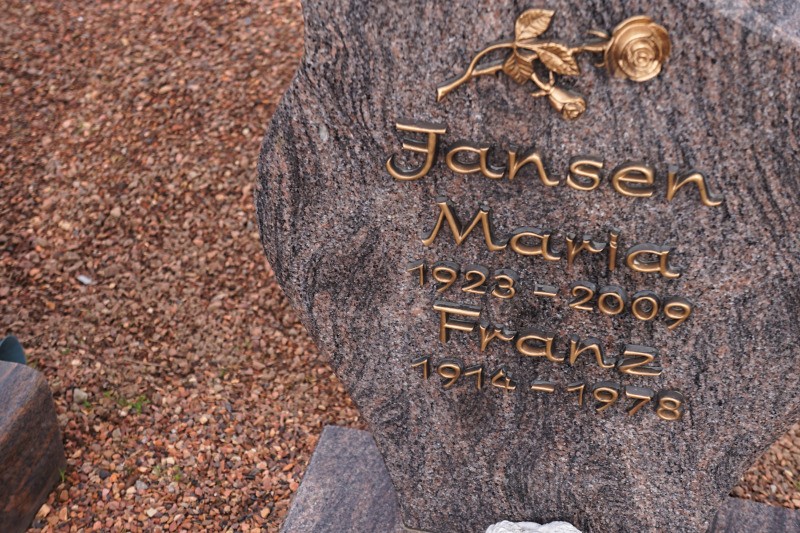 Jansen
Maria
1923 - 2009
Franz
1914 - 1978